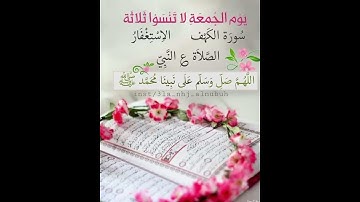 يوم الجُمعَة لا تَنْسَوْا ثَلاثَة
سُورَة الكَهْف الاِسْتِغْفَارُ
الصَّلَاة ع النَّبِيِّ
اللَّهُمَّ صَلِّ وَسَلِّم عَلَى نَبِينَا مُحَمَّد ﷺ
inst/3la_nhj_alnubuh